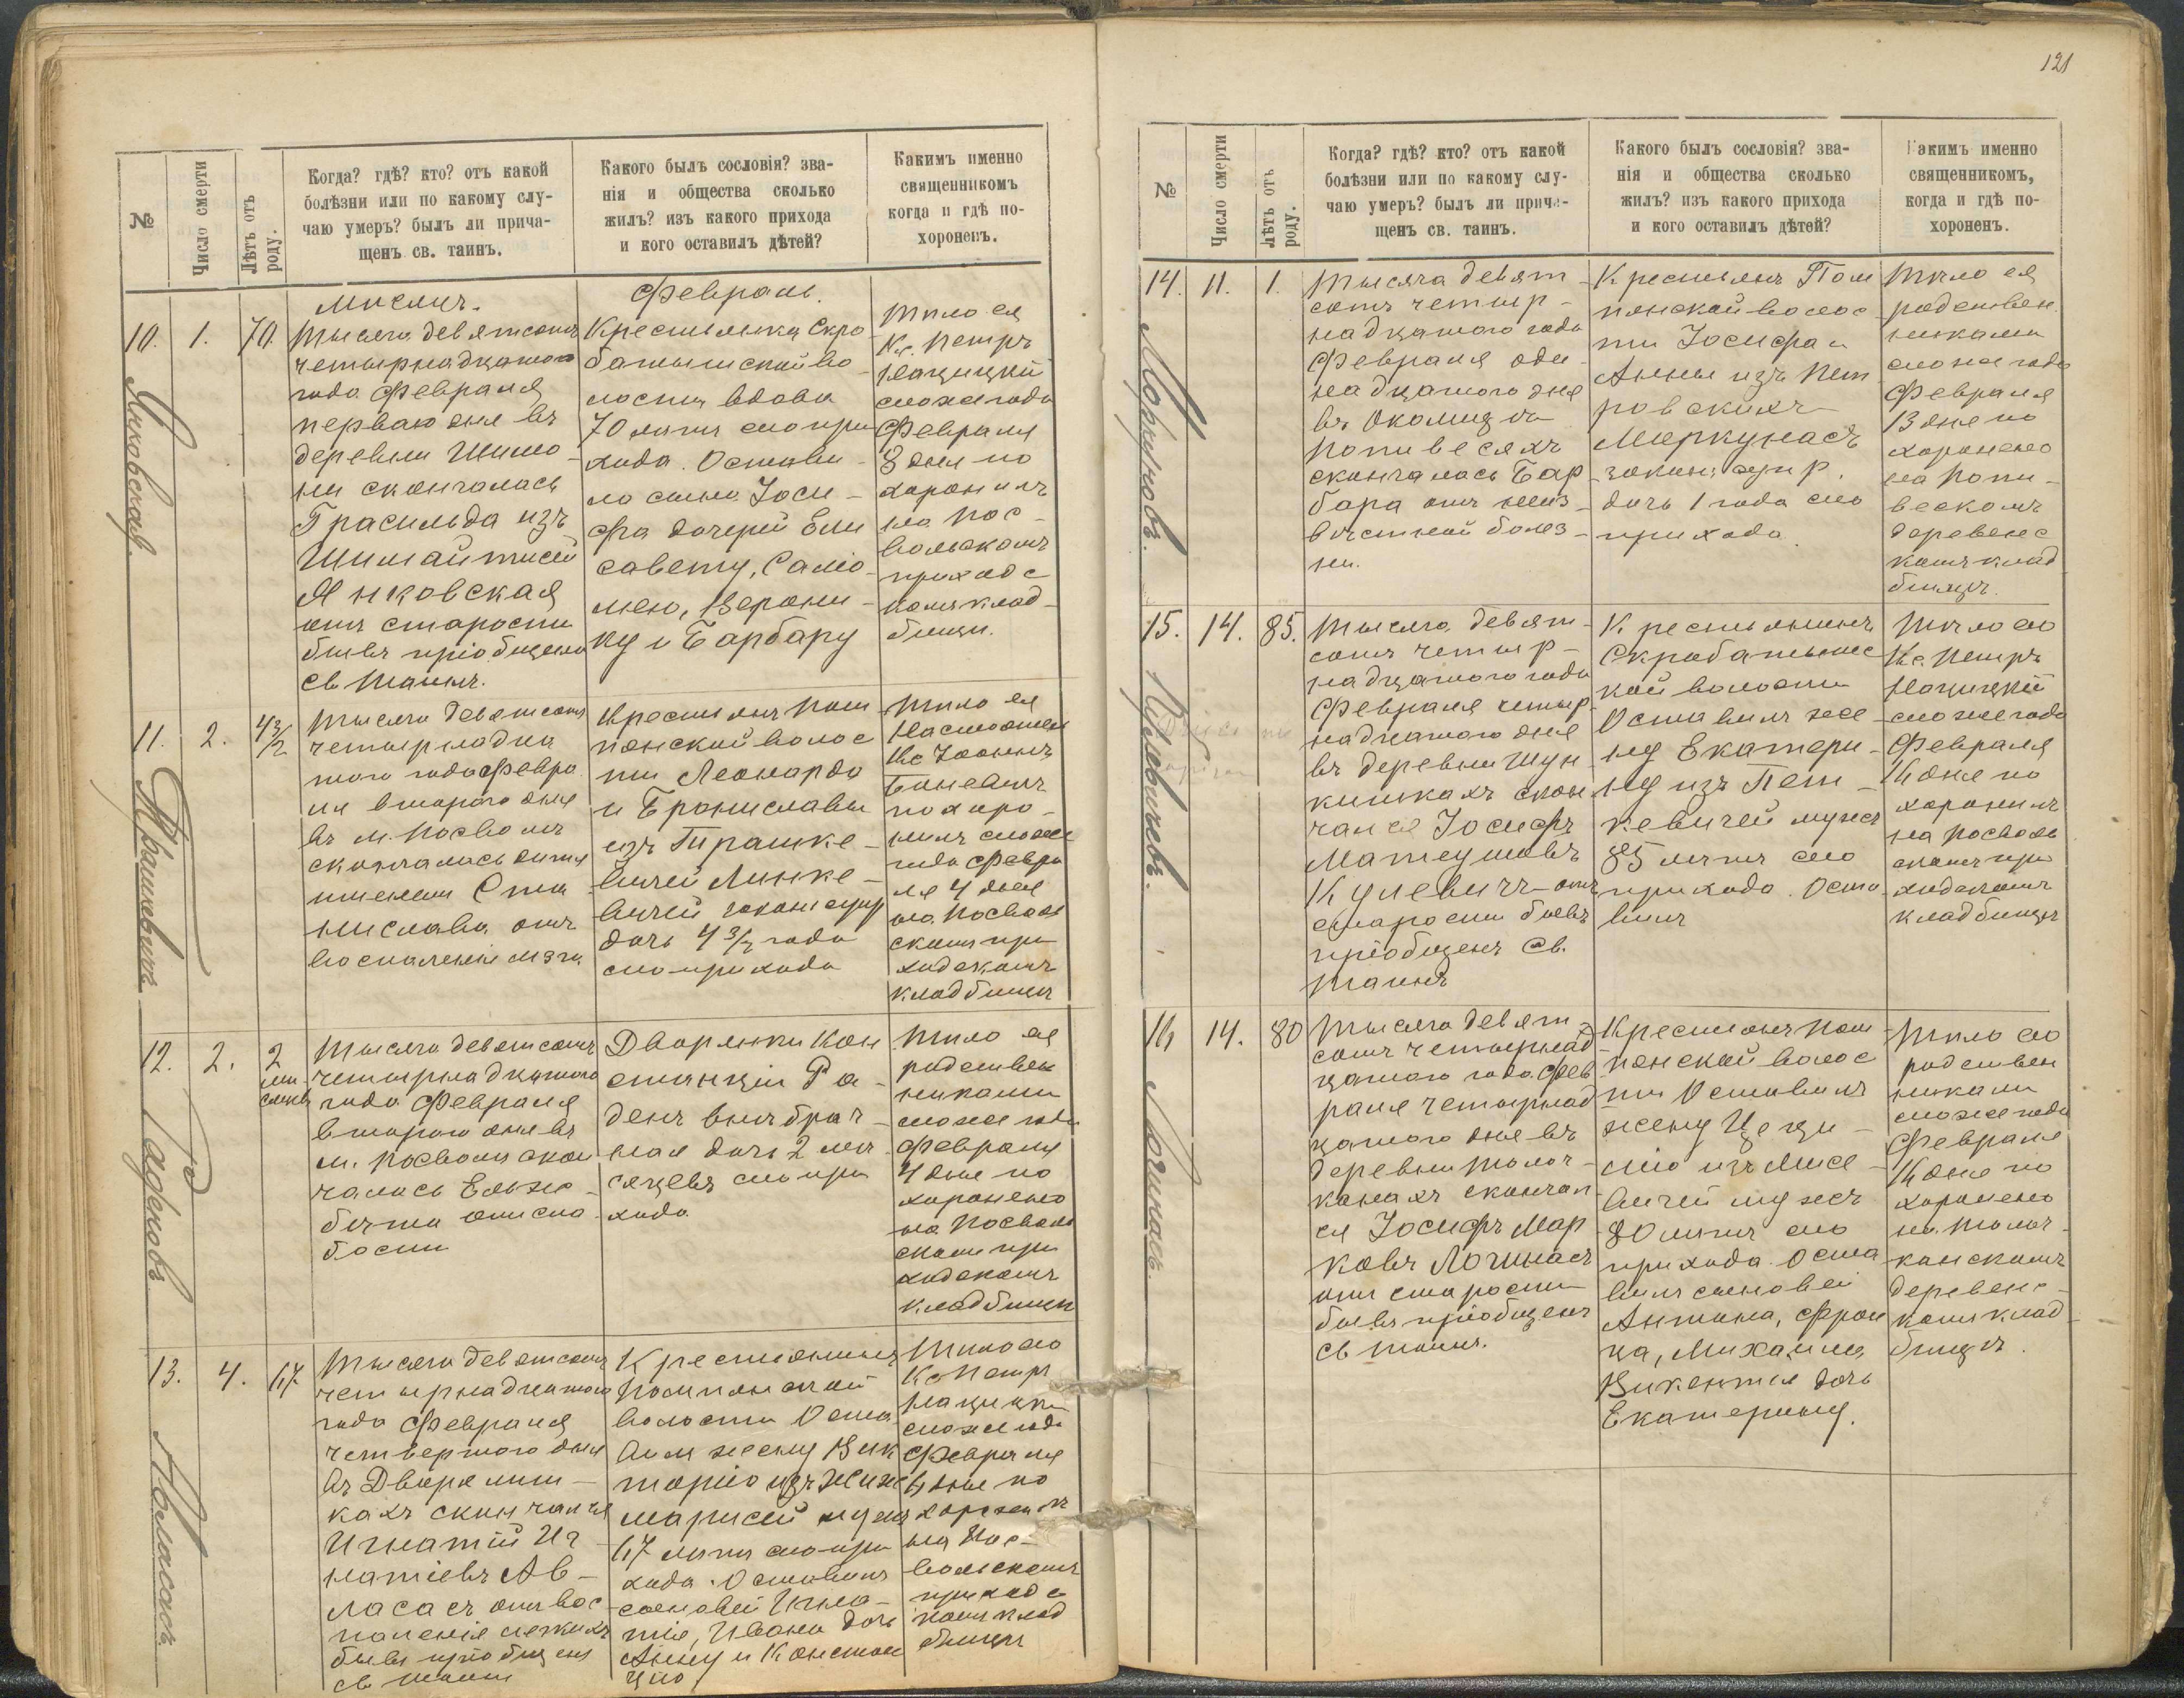 №
Число смерти
Лѣтъ отъ роду.
Когда? гдѣ? кто? отъ какой
болѣзни или по какому слу-
чаю умеръ? былъ ли прича-
щенъ св. таинъ.
Какого былъ сословія? зва-
нія и общества сколько
жилъ? изъ какого прихода
и кого оставилъ дѣтей?
Какимъ именно
священникомъ
когда и гдѣ по-
хороненъ.
Мѣсяцъ.
Февраль.
10.
Янковская
1.
70.
Тысяча девятсотъ
четырнадцатого
года Февраля
перваго дня въ
деревни Шимо-
ни скончалась
Грасильда изъ
Шимайтисей
Янковская
отъ старости
бывъ пріобщена
св Таинъ.
Крестьянка Скро
батышской во
лости вдова
70 лѣтъ сего при
хода. Остави-
ла сына Іоси-
фа дочерей Ели
савету, Сало-
мею, Верони-
ку и Барбару
Тѣло ея
Кс. Петръ
Нацицкій
сего же года
Февраля
3 дня по
хоронилъ
на Пос-
вольскомъ
приходс
комъ клад-
бищи.
11.
Трашкевичъ
2.
4 3/2
Тысяча девятсотъ
четырнадца
того года Февра
ля второго дня
въ м. Посволь
скончалась дитя
именем Ста
нислава отъ
воспаленія мозга
Крестьянъ Пом
пянской волос
ти Леонарда
и Брониславы
изъ Трашке-
вичей Линке-
вичей закон. супр
дочь 4 3/2 года
сего прихода
Тѣло ея
Настоятель
Кс Іоаннъ
похоро-
нилъ сего же
года Февра
ля 4 дня
на Посволь
скомъ при
ходскомъ
кладбищѣ
12.
Раденовъ
2.
2
мѣ
сяцевъ
Тысяча девятсотъ
четырнадцатого
года Февраля
второго дня въ
м. Посволи скон
чалась Ельжо-
бѣта отъ сла
бости
Дворянки Кон
станціи Ра-
денъ внѣбрач-
ная дочь 2 мѣ
сяцевъ сего при
хода
Тѣло ея
родствен
никами
сего же года
Февраля
4 дня по
хоронено
на Посволь
скомъ при
ходскомъ
кладбищѣ
13.
Авласасъ
4.
67
Тысяча девятсотъ
четырнадцатого
года Февраля
четвертого дня
въ Двора
кахъ скончался
Игнатій Иг-
натіевъ Ав-
ласасъ отъ вос
паленія легкихъ
бывъ пріобщенъ
св таинъ
Крестьянинъ
Помпянской
волости Оста
вилъ жену Вик
торію изъ
67 лѣтъ сего при
хода. Оставилъ
сыновей Игна-
тія, Ивана дочь
Анну и Констан
цію
Тѣло его
Кс Петръ
Нацицкій
сего же года
Февраля
6 дня по
хоронилъ
на Пос-
вольскомъ
приходс
комъ клад
бищѣ
121
№
Число смерти
Лѣтъ отъ роду.
Когда? гдѣ? кто? отъ какой
болѣзни или по какому слу-
чаю умеръ? былъ ли прича-
щенъ св. таинъ.
Какого былъ сословія? зва-
нія и общества сколько
жилъ? изъ какого прихода
и кого оставилъ дѣтей?
Какимъ именно
священникомъ,
когда и гдѣ по-
хороненъ.
14.
11.
1.
Тысяча девят-
сотъ четыр-
надцатого года
Февраля оди-
надцатого дня
въ Околицѣ
Попивесяхъ
скончалась Бар
бара отъ неиз-
вѣстной болез-
ни.
Крестьянъ Пом
пянской волос
ти Іосифа и
Анны изъ Пет
ровскихъ
Меркунасъ
закон. супр.
дочь 1 года сего
прихода.
Тѣло ея
родствен
никами
сего же года
Февраля
13 дня по
хоронено
на Попи-
вескомъ
деревенс
комъ клад
бищѣ.
15.
Кулевичевъ.
14.
85.
Тысяча девят-
сотъ четыр-
надцатого года
Февраля четыр
надцатого дня
въ деревни Шун
кишкахъ скон
чался Іосифъ
Матеушовъ
Кулевичъ отъ
старости бывъ
пріобщенъ Св.
Таинъ
Крестьянинъ
Скробатышс
кой волости
Оставилъ же-
ну Екатери-
ну изъ Пет-
кевичей мужъ
85 лѣтъ сего
прихода. Оста
вилъ
Тѣло его
Кс. Петръ
Нацицкій
сего же года
Февраля
16 дня по
хоронилъ
на Посволь
скомъ при
ходскомъ
кладбищѣ
16
Логинасъ.
14.
80
Тысяча девят-
сотъ четырнад
цатого года Фев
раля четырнад
цатого дня въ
деревни Толоч-
канахъ скончал
ся Іосифъ Мар
ковъ Логинасъ
отъ старости
бывъ пріобщенъ
св таинъ.
Крестьянъ Пом
пянской волос
ти Оставилъ
жену Цеци-
лію изъ Мисе-
вичей мужъ
80 лѣтъ сего
прихода. Оста
вилъ сыновей
Антона, Фран
ца, Михаила,
Викентія дочь
Екатерину.
Тѣло его
родствен
никами
сего же года
Февраля
16 дня по
хоронено
на Толоч-
канскомъ
деревенс-
комъ клад
бищѣ.